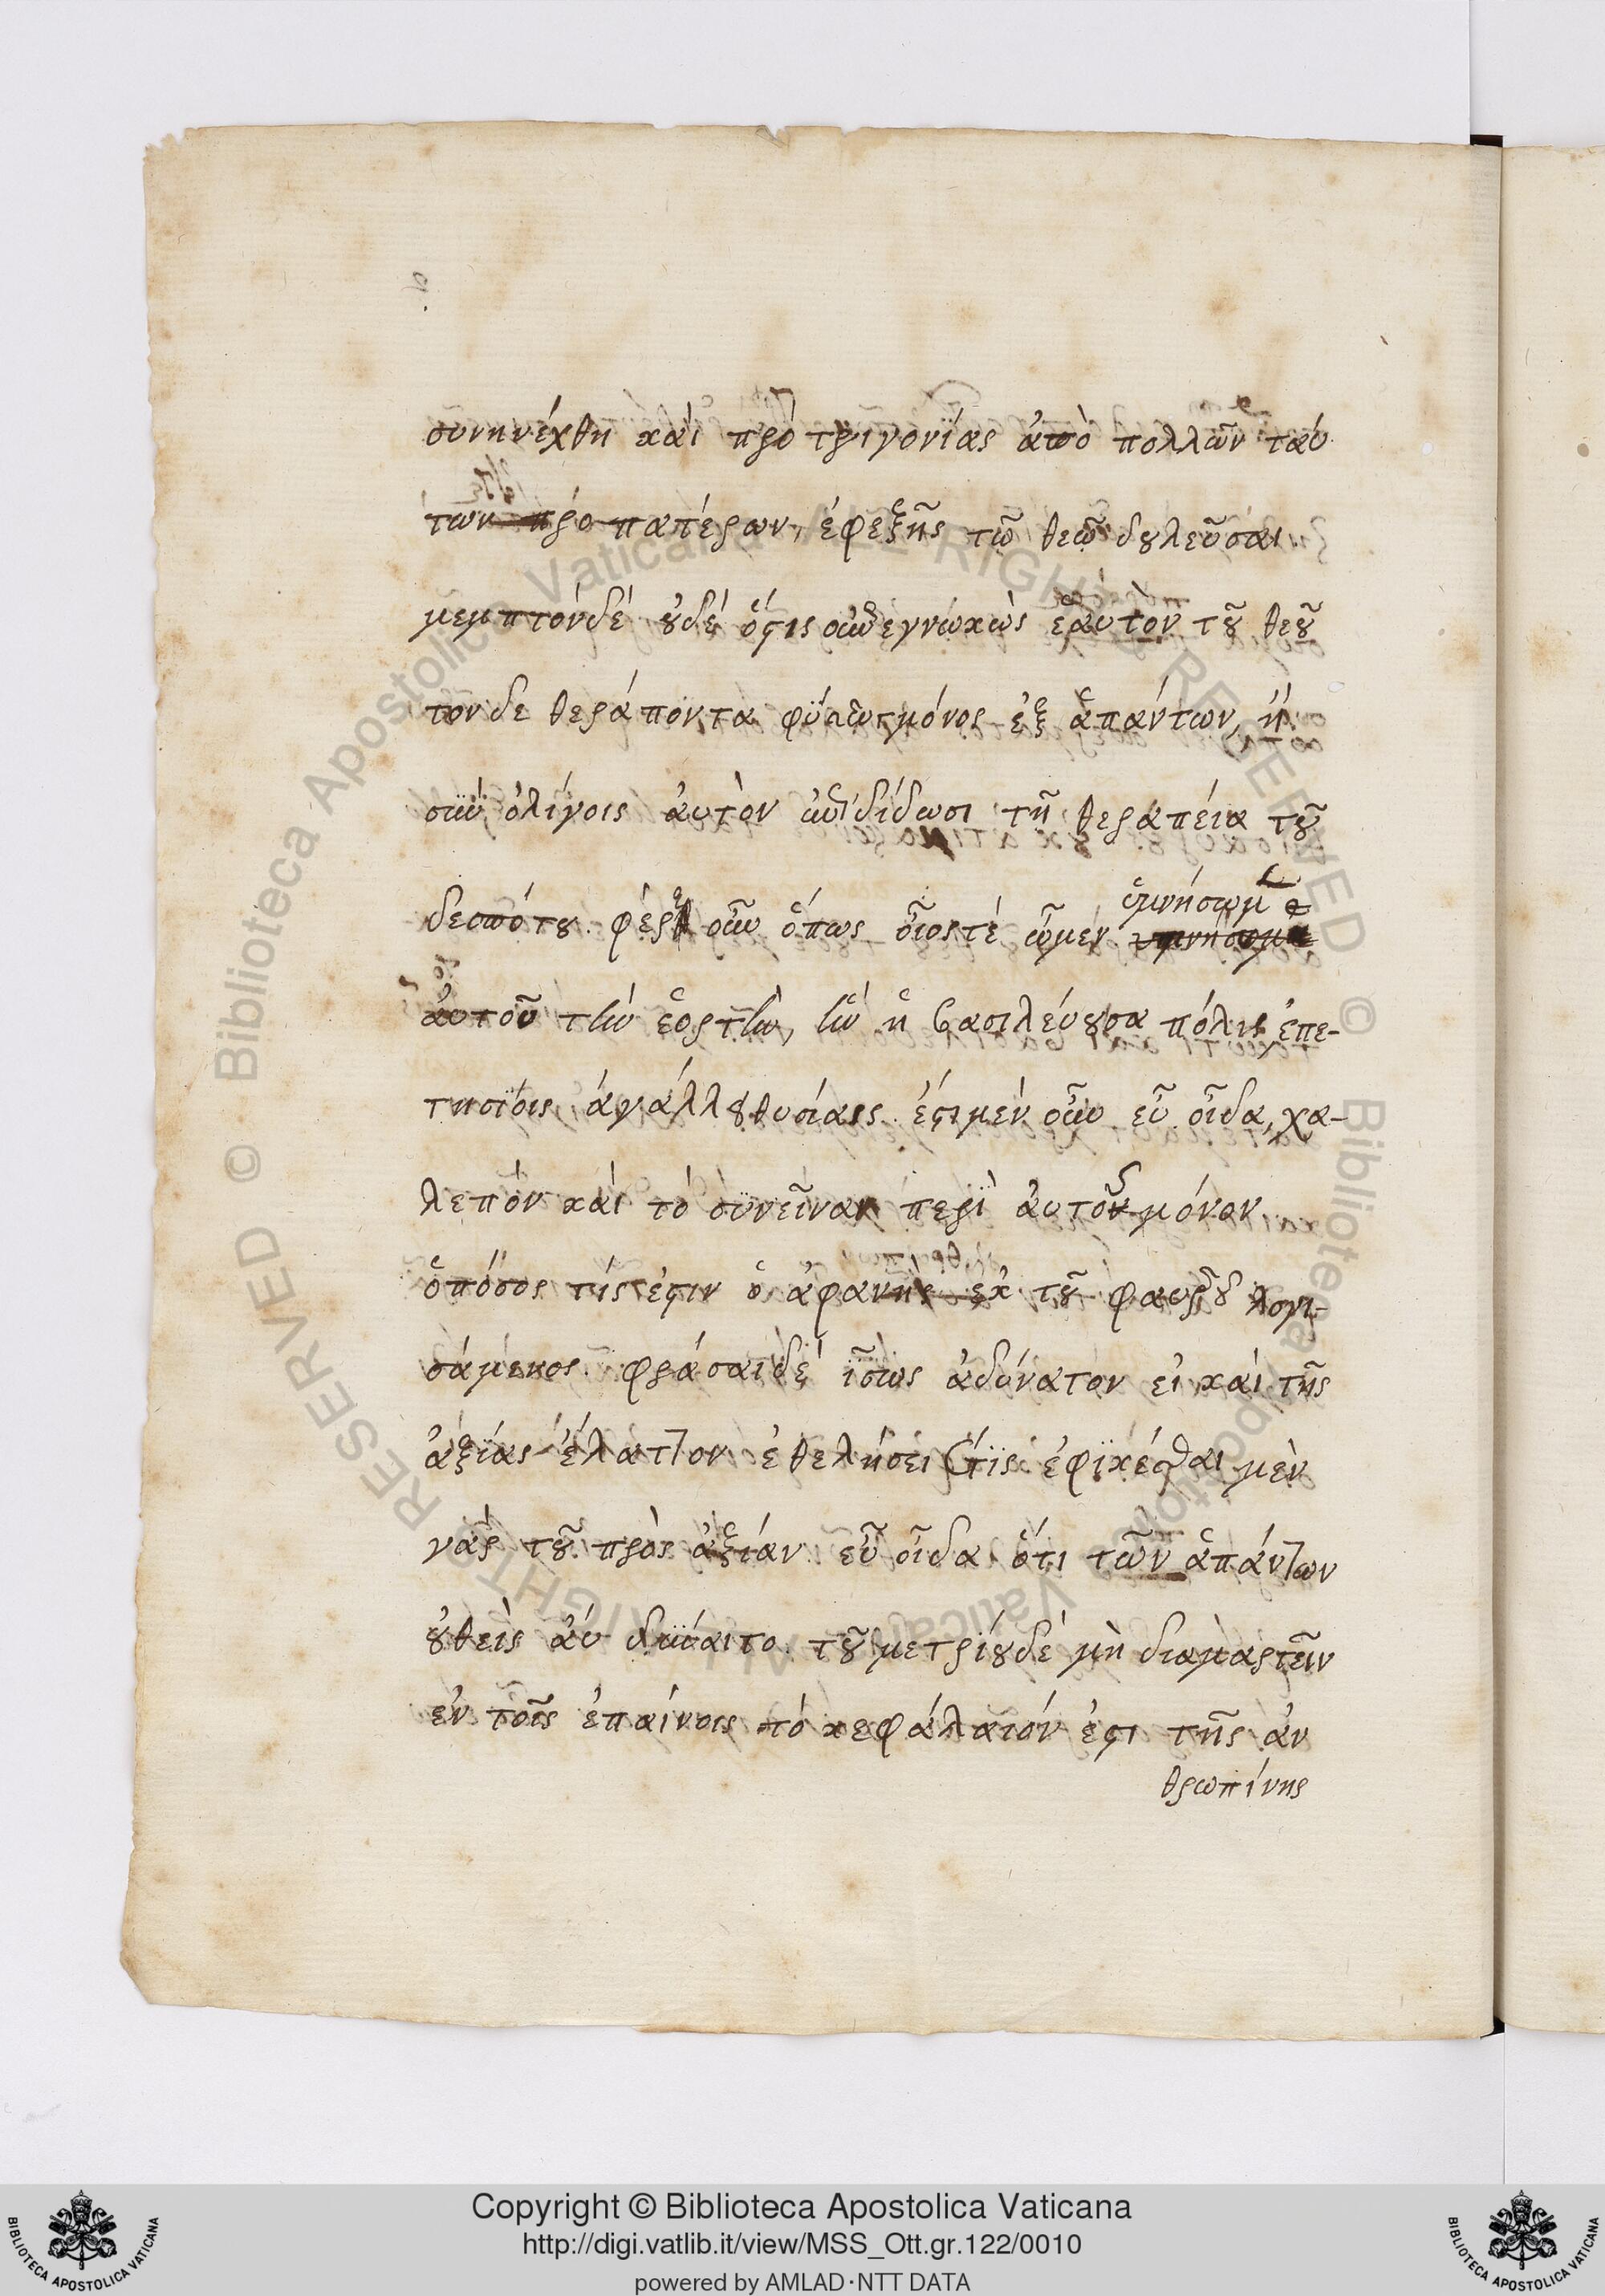 συνηνέχθη καὶ πρὸ τριγονίας ἀπὸ πολλῶν ταύ
των προπατέρων, ἐφεξῆς τῶ θεῶ δουλεῦσαι
μεμπτόνδέ οὐδέ ὅστις οὖν ἐγνωκὼς ἑαυτὸν τοῦ θεοῦ
τον δε θεράποντα μόνος ἐξ ἁπάντων, ἢ
σὺν ὀλίγοις ἀυτὸν ἀντιδίδωσι τῆ θεραπέια τοῦ
δεσπότου. οὖν ὅπως οἷοςτέ ὦμεν ὑμνήσωμε
ἀυτοῦ τὴν ἑορτὴν, ἣν ἡ βασιλέυουσα πόλις ἐπε-
τησίοις ἀγάλλου θυσίαις. ἔστι μεν οὖν εὖ οἶδα, χα-
λεπὸν καὶ τὸ συνεῖναι περὶ ἀυτοῦ μόνον
ὁπόσος τίς ἐστιν ὁ ἀφανὴς ἐκ τοῦ φαυροῦ λογι-
σάμενος. φράσαι δέ ἴσως ἀδύνατον ει καὶ τῆς
ἀξίας ἔλαττον ἐθελήσει τίς ἐφικέσθαι μὲν
γὰρ τοῦ πρὸς ἀξίαν εὖ οἶδα ὅτι τῶν ἁπάντων
οὐθεὶς ἂν δύναιτο. τοῦ μετρίου δέ μὴ διαμαρτεῖν
ἐν τοῖς ἐπαίνοις τὸ κεφάλαιόν ἐστι τῆς ἀν
θρωπίνης
RESERVED © Biblioteca Apostolica Vaticana
Copyright © Biblioteca Apostolica Vaticana
http://digi.vatlib.it/view/MSS_Ott.gr.122/0010
powered by AMLAD·NTT DATA
BIBLIOTECA APOSTOLICA VATICANA
BIBLIOTECA APOSTOLICA VATICANA